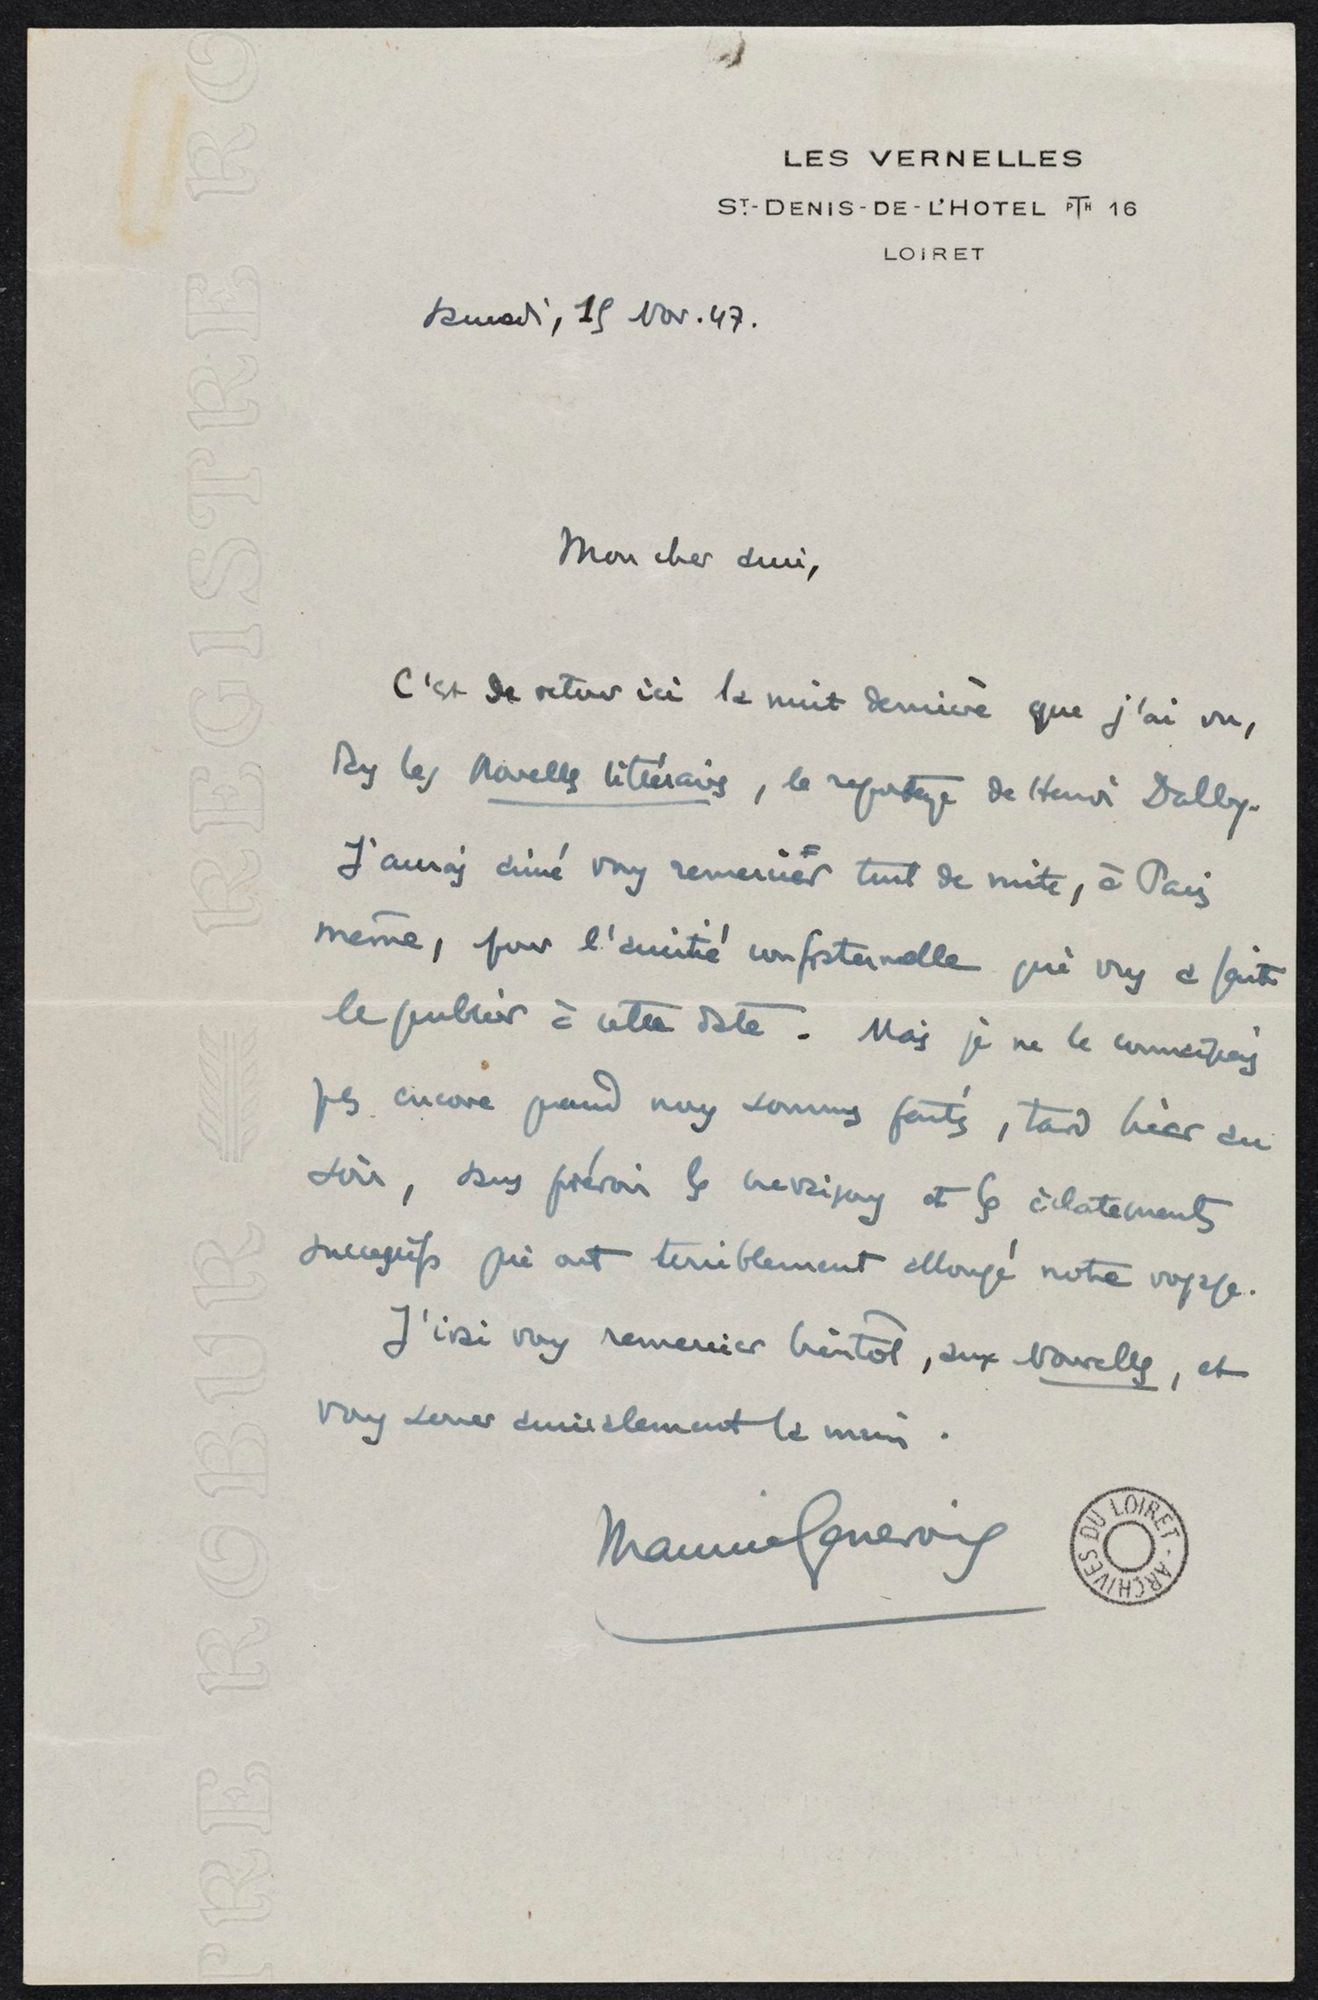 LES VERNELLES
ST-DENIS-DE-L'HOTEL PTH 16
LOIRET
samedi, 15 Nov. 47.
Mon cher ami,
C'est de retour ici la nuit dernière que j'ai vu,
dans les Nouvelles littéraires, le reportage de Henri Dalby.
J'aurais aimé vous remercier tout de suite, à Paris
même, pour l'amitié confraternelle qui vous a fait
le publier à cette date. Mais je ne le connaissais
pas encore quand nous sommes partis, tard hier au
soir, sans prévoir les crevaisons et les éclatements
successifs qui ont terriblement allongé notre voyage.
J'irai vous remercier bientôt, aux Nouvelles, et
vous serrer amicalement la main.
Maurice Genevoix
ARCHIVES DU LOIRET
REGISTRE RO
TRE ROBUR